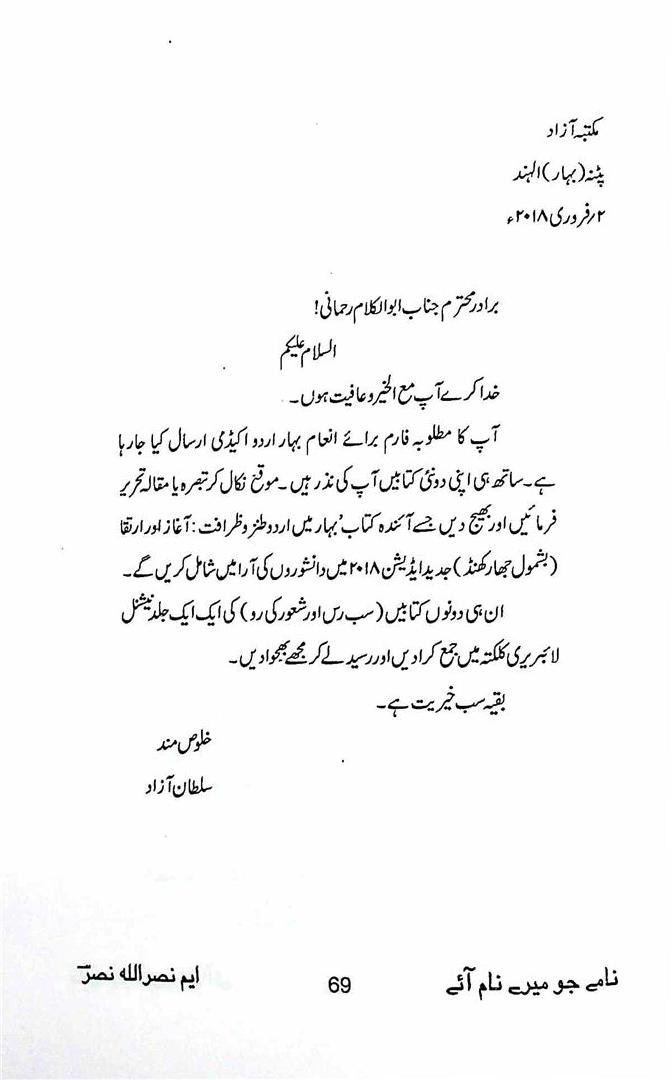 مکتبہ آزاد
پٹنہ (بہار) الہند
۲/فروری ۲۰۱۸ء
برادر محترم جناب ابوالکلام رحمانی!
السلام علیکم
خدا کرے آپ مع الخیر و عافیت ہوں۔
آپ کا مطلوبہ فارم برائے انعام بہار اردو اکیڈمی ارسال کیا جا رہا
ہے۔ ساتھ ہی اپنی دو نئی کتابیں آپ کی نذر ہیں۔ موقع نکال کر تبصرہ یا مقالہ تحریر
فرمائیں اور بھیج دیں جسے آئندہ کتاب 'بہار میں اردو طنز و ظرافت: آغاز اور ارتقا
(بشمول جھارکھنڈ) جدید ایڈیشن ۲۰۱۸ میں دانشوروں کی آرا میں شامل کریں گے۔
ان ہی دونوں کتابیں (سب رس اور شعور کی رو) کی ایک ایک جلد نیشنل
لائبریری کلکتہ میں جمع کرا دیں اور رسید لے کر مجھے بھجوا دیں۔
بقیہ سب خیریت ہے۔
خلوص مند
سلطان آزاد
نامے جو میرے نام آئے 69 ایم نصر اللہ نصرؔ